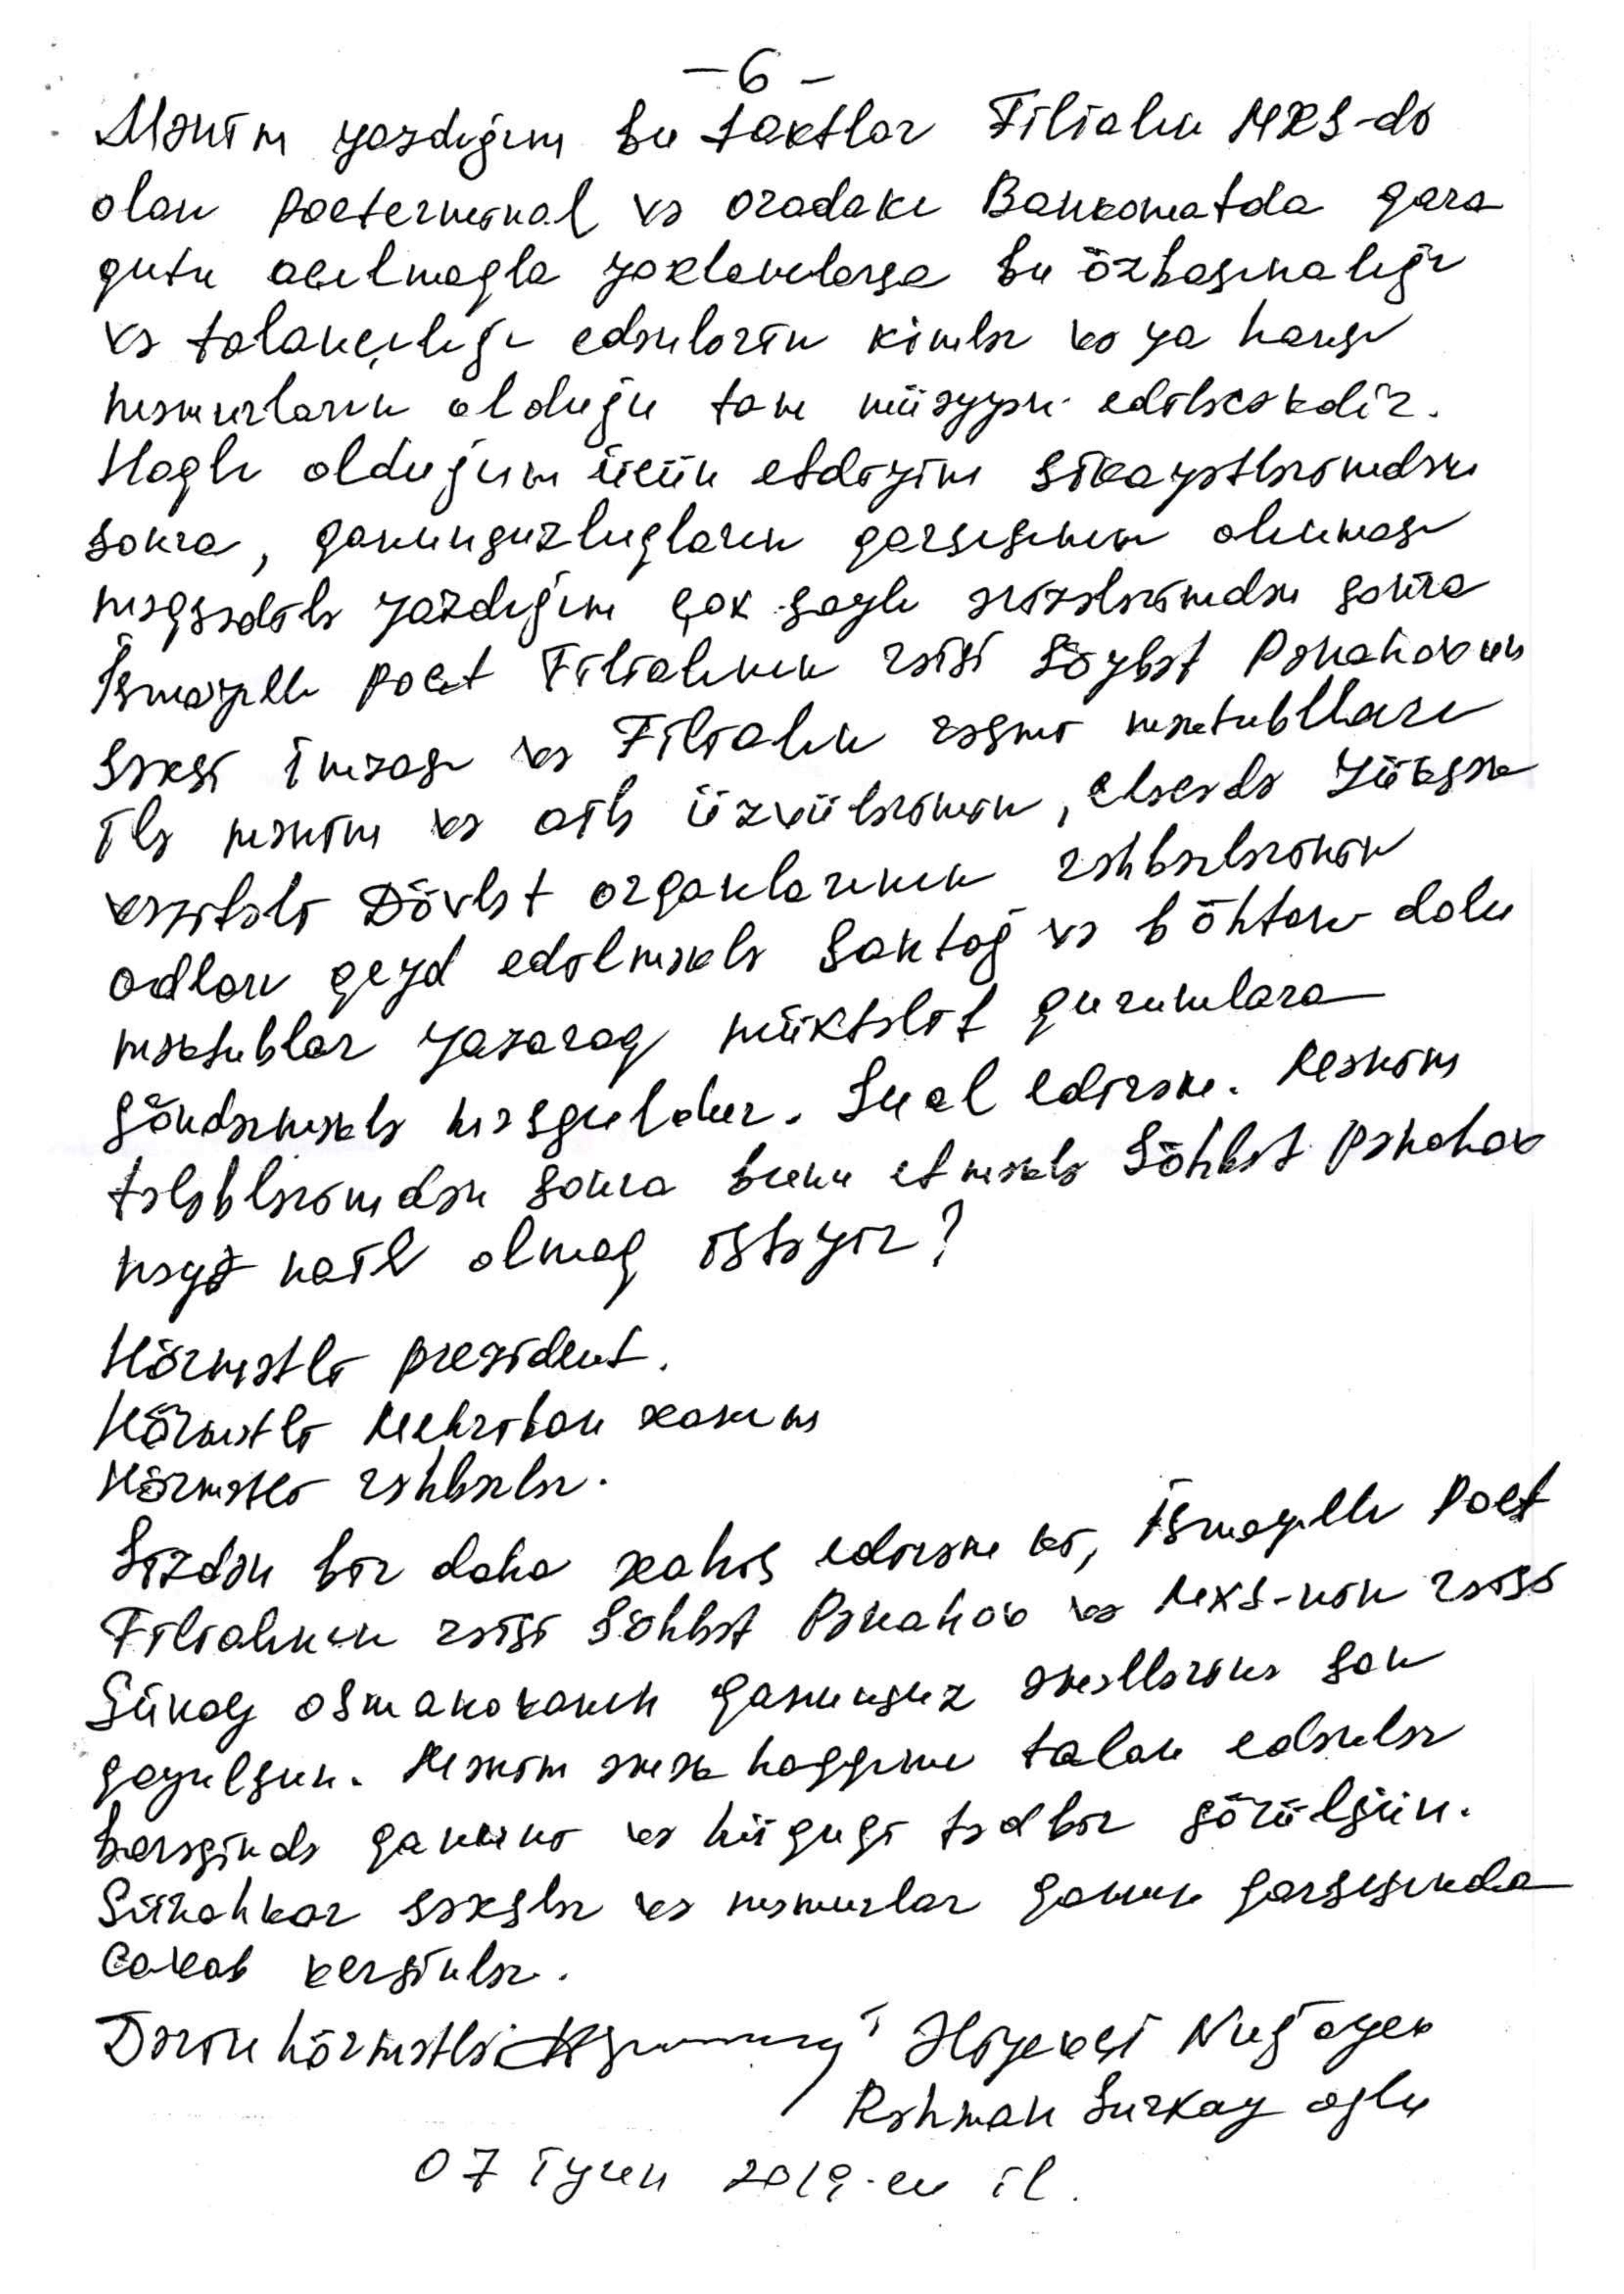 -6-
Mənim yazdığım bu faktlar Filialın MXS-də
olan poçterminal və oradakı Bankomatda qara
qutu açılmaqla yoxlanılarsa bu özbaşınalığı
və talançılığı edənlərin kimlər və ya hansı
məmurların olduğu tam müəyyən ediləcəkdir.
Haqlı olduğum üçün etdiyim şikayətlərimdən
sonra, qanunsuzluqların qarşısının alınması
məqsədilə yazdığım çox saylı ərizələrimdən sonra
İsmayıllı poçt Filialının rəisi Söhbət Pənahovun
şəxsi imzası və Filialın rəsmi məktubları
ilə mənim və ailə üzvülərimin, eləcədə yüksək
vəzifəli Dövlət orqanlarının rəhbərlərinin
adları qeyd edilməklə şantaj və böhtan dolu
məktublar yazaraq müxtəlif qurumlara
göndərməklə məşğuldur. Sual edirəm. Mənim
tələblərimdən sonra bunu etməklə Söhbət Pənahov
nəyə nail olmaq istəyir?
Hörmətli prezident.
Hörmətli Mehriban xanım
Hörmətli rəhbərlər.
Sizdən bir daha xahiş edirəm ki, İsmayıllı Poçt
Filialının rəisi Söhbət Pənahov və MXS-nin rəisi
Günay Osmanovanın qanunsuz əməllərinə son
qoyulsun. Mənim əmək haqqımı talan edənlər
barəsində qanuni və hüquqi tədbir görülsün.
Günahkar şəxslər və məmurlar qanun qarşısında
cavab versinlər.
Dərin hörmətlə: Hiyevəsi Nuğayev
Rəhman Surxay oğlu
07 iyun 2019-cu il.